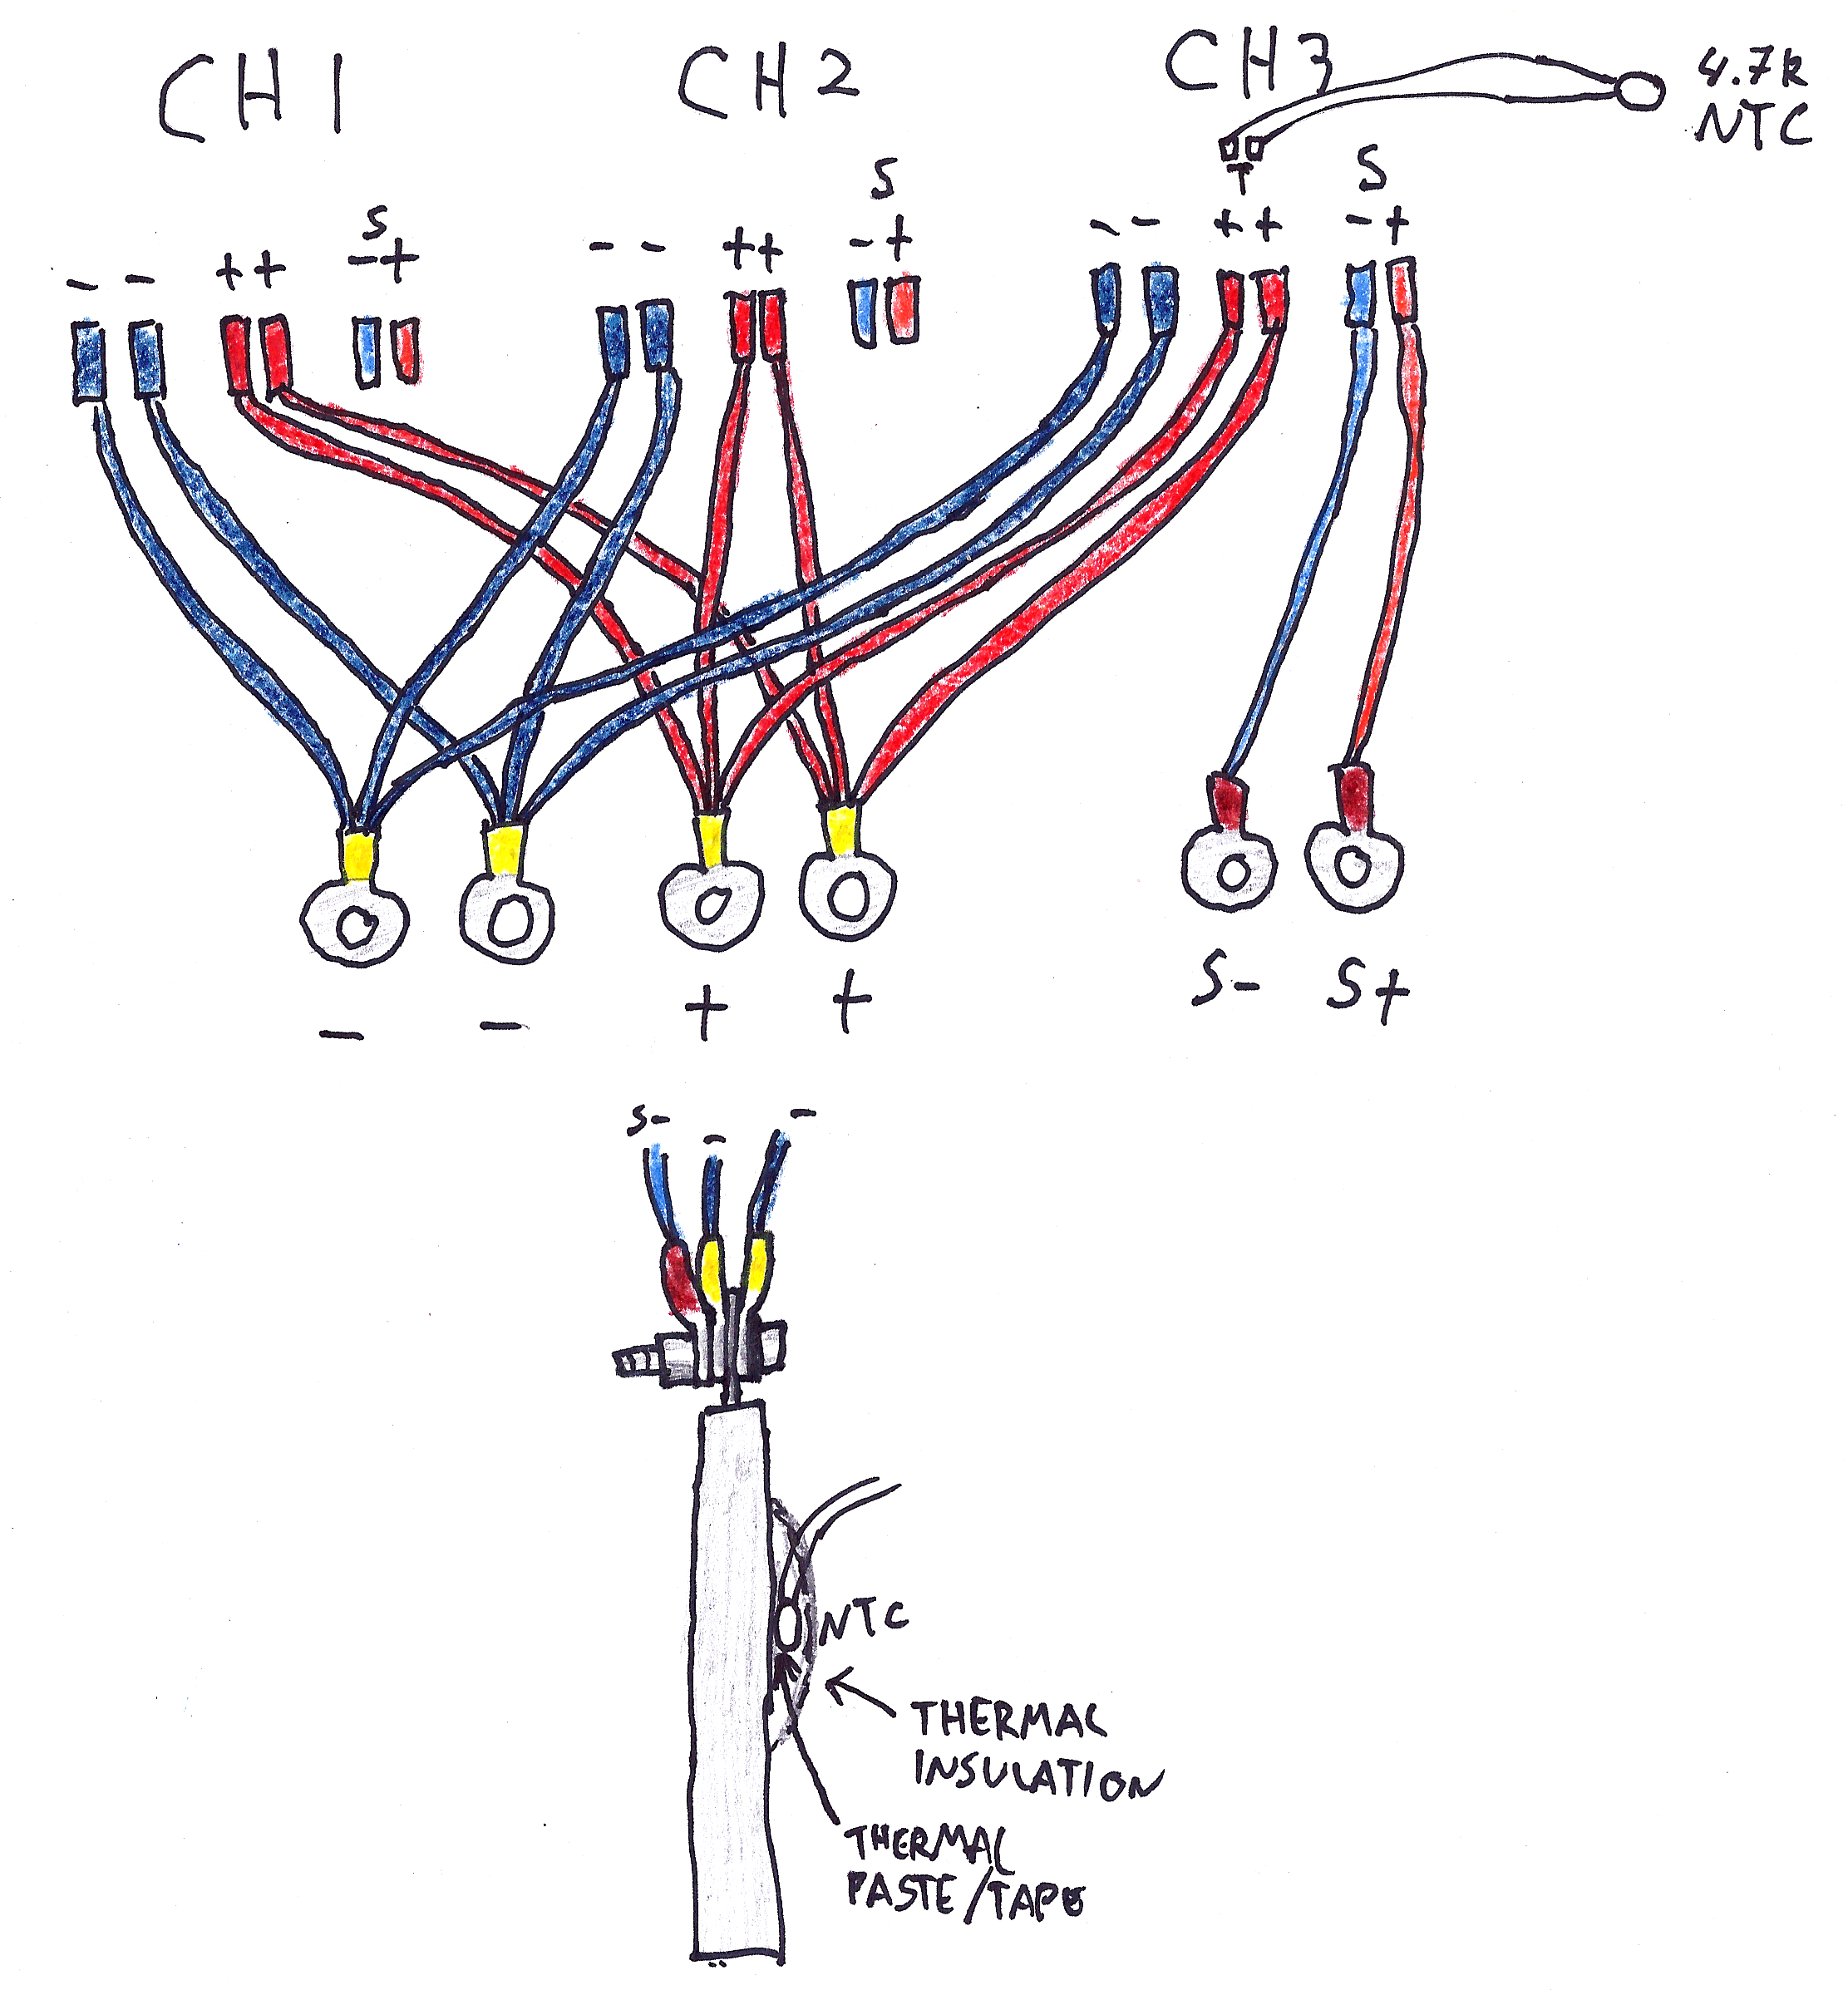 CH1
CH2
CH3
4.7k
NTC
T
S
S
S
- -
++
-+
- -
++
-+
- -
++
-+
-
-
+
+
S-
S+
S-
-
-
NTC
THERMAL
INSULATION
THERMAL
PASTE/TAPE